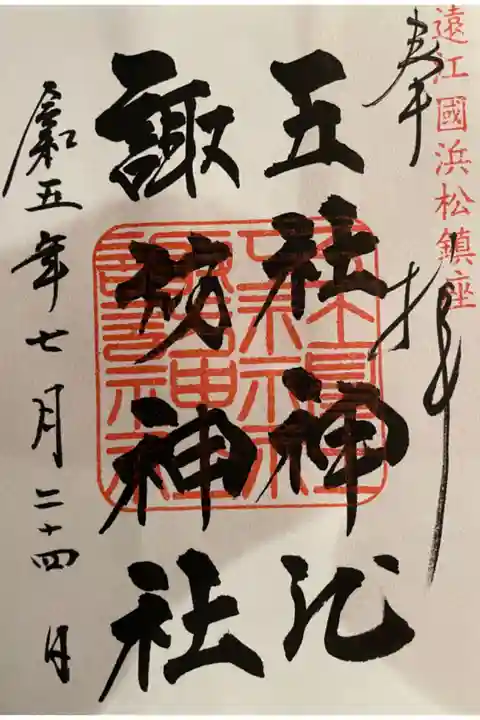 遠江國浜松鎮座
奉拝
五社神社
諏訪神社
令和五年七月二十四日